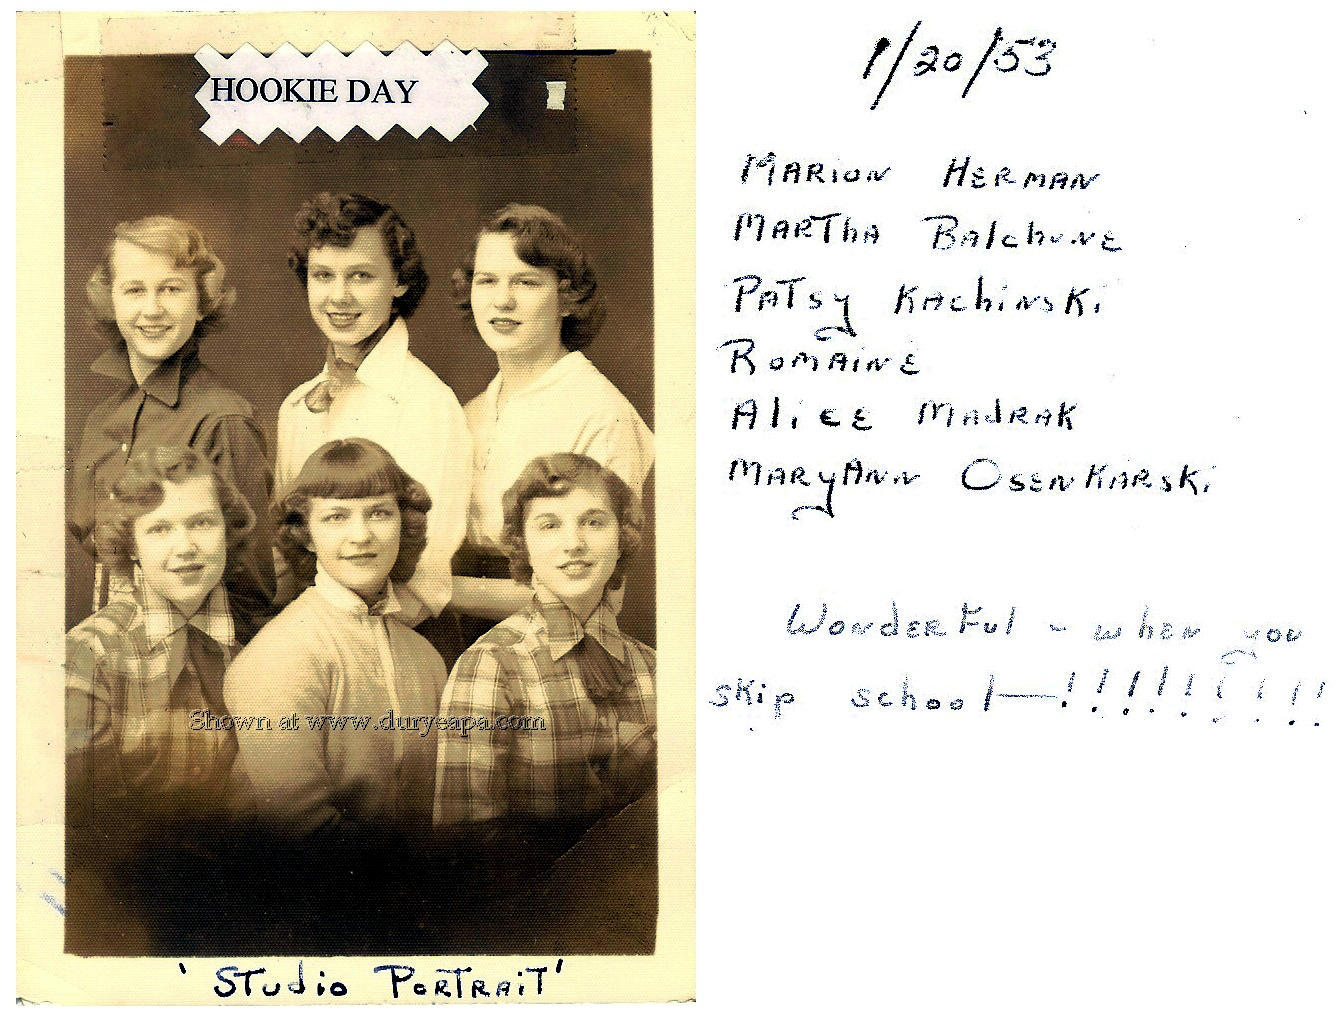 HOOKIE DAY
Shown at www.duryeapa.com
'STudio PORTRAiT'
1/20/53
MARION HERMAN
MARTHA BALCHUNE
PATSY KACHINSKI
ROMAINE
ALICE MADRAK
MARYANN OSENKARSKI
WONDERFUL - WHEN YOU
SKIP SCHOOL—!!!!!!!!!